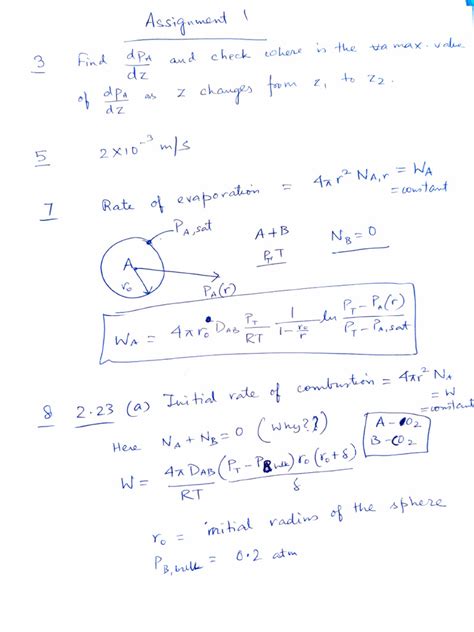 Assignment 1
3 Find dpA/dz and check where is the max. value
of dpA/dz as z changes from z1 to z2.
5 2×10⁻³ m/s
7 Rate of evaporation = 4πr² NA,r = WA
= constant
PA,sat
A+B NB = 0
PT, T
A
r0
PA(r)
WA = 4πr0 DAB PT/RT 1/(1 - r0/r) ln (PT - PA(r))/(PT - PA,sat)
8 2.23 (a) Initial rate of combustion = 4πr² NA
= W
= constant
Here NA + NB = 0 (Why??)
A - O2
B - CO2
W = 4πDAB/RT (PT - PB,bulk) r0 (r0 + δ)/δ
r0 = initial radius of the sphere
PB,bulk = 0.2 atm